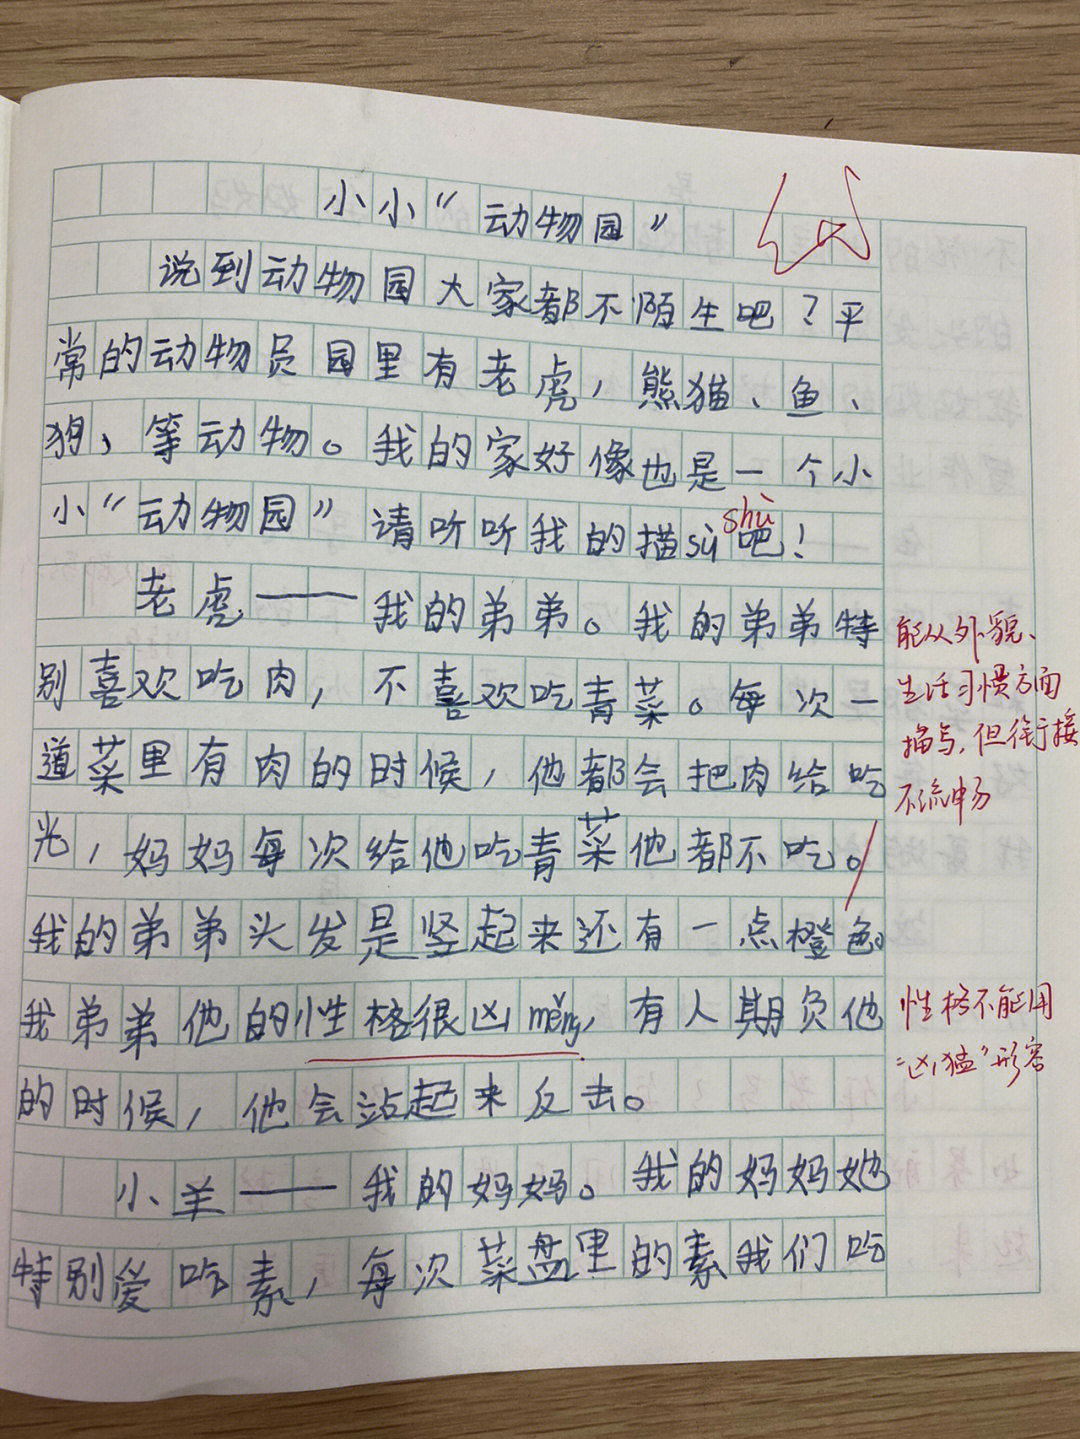 小小“动物园”
说到动物园大家都不陌生吧？平
常的动物员园里有老虎，熊猫、鱼、
狗，等动物。我的家好像也是一个小
小“动物园”请听听我的描sù吧！
shù
老虎——我的弟弟。我的弟弟特
别喜欢吃肉，不喜欢吃青菜。每次一
道菜里有肉的时候，他都会把肉给吃
光，妈妈每次给他吃青菜他都不吃。
我的弟弟头发是竖起来还有一点橙色。
我弟弟他的性格很凶měng，有人期负他
的时候，他会站起来反击。
小羊——我的妈妈。我的妈妈她
特别爱吃素，每次菜盘里的素我们吃
能从外貌、
生活习惯方面
描写，但衔接
不流畅
性格不能用
“凶猛”形容